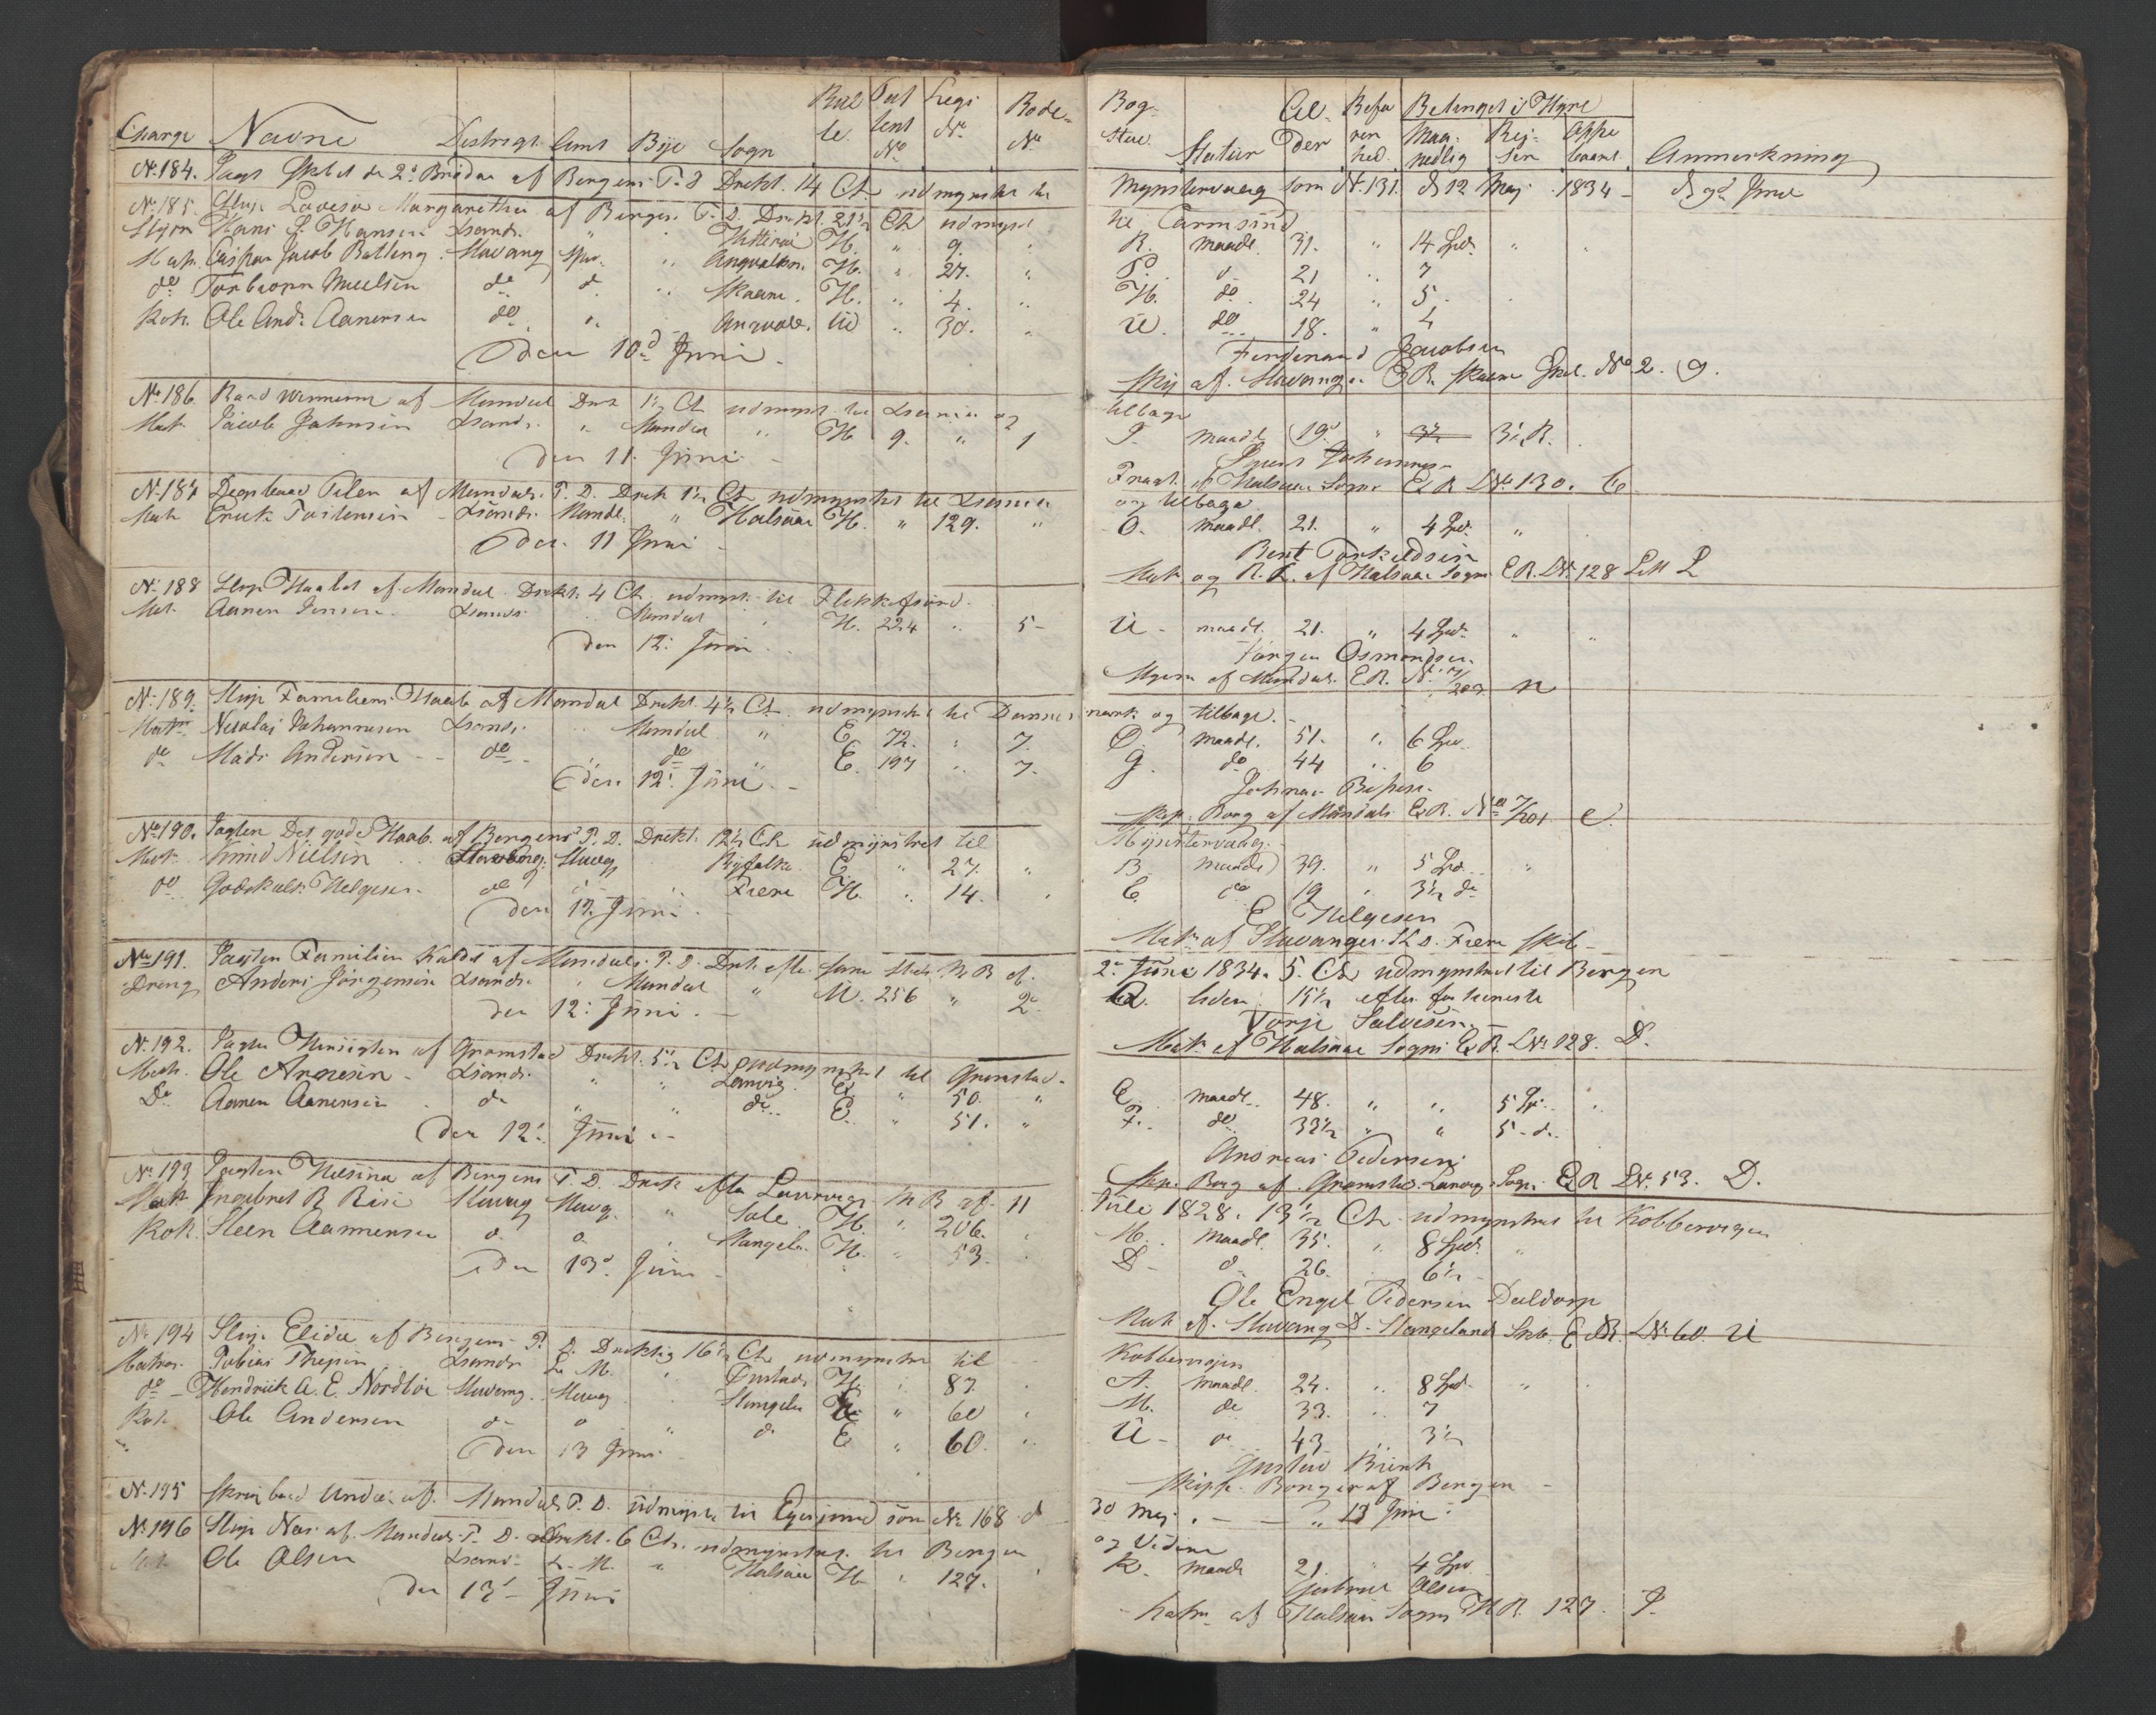 Charge Navne Distrigt Amt Bÿe Sogn Rul le Pat tent No Legs No Rode No
No 184. Jagt Skbet de 2de Brødre af Bergens T. D. Drekt. 14 Cl. udmynstret til
No 185. Slup Lovise Margaretha af Bergen T. D. Drekt. 21½ Cl. udmynst
Styrm Hans J. Hansen Xsands. " " Hitterøe H. " 9. "
Mat. Casper Jacob Balling Stavang Stav. " H. " 27. "
do Torbiørn Nielsen do d. " Skaane. H. " 4. "
Kok. Ole And. Aanensen do " " 30. "
den 10d Juni
No 186. Baad af Mandal Drt 1½ Cl. udmynst. til Xsand og
Mat. Jacob Jahnsen Xsands. " Mandal " H. 9. " 1
den 11. Juni
No 187 Dæksbaad Pilen af Mandals. T. D. Drekt 1½ Cl. udmynstret til Xsand
Mat. Erick Torstensen Xsands. Mandl. " Halsaae H. " 129. "
den 11 Juni
No 188 Slup Haabet af Mandal. Drekt. 4 Cl. udmynst. til Flekkefiord
Mat. Aanen Jensen Xsands. Mandal H. 224 " 5
den 12. Juni
No 189. Slup Familiens Haab af Mandal Drekt. 4½ Cl. udmynstret til Danne
Matr. Nicolai Johannesen Xsands. Mandal " E. 72. " 7.
do Mads Andersen do do " E. 197 " 7.
den 12. Juni
No 190. Jagten Det gode Haab af Bergens T. D. Drekt. 12½ Cl. udmynstret til
Mat. Knud Nielsen Stavang. Stavg Ryfylke E. " 27. "
do Godskalk Helgesen do d. Fierre H. " 14. "
den 12. Juni
No 191. Jagten Familien kaldet af Mandals. T. D. Drt. efter M B af
Dreng Anders Jørgensen Xsands. " Mandal " U. 256 " 2
den 12. Juni
No 192. Jagten Hensigten af Gromstad Drekt. 5½ Cl. udmynstret til Gromstad
Mat. Ole Arnesen Xsands. " " Landvig E. " 50. "
Do Aanen Aanensen do " " do E. " 51. "
den 12. Juni
No 193 Jagten Helsina af Bergens T. D. Drekt efter Laurvigs M B af 11
Mat. Ingebret R Risi Stavag Stavg. " Sole H. " 206. "
Kok. Steen Aanensen d. d. " Stangel. H. " 53. "
den 13. Juni
No 194 Slup Elida af Bergens T. D. Drektig 16½ Cl. udmynstret til
Matros. Tobias Xsands L. M. " H. " 87. "
do Hendrik A. E. Nordbøe Stavang. Stavg Stangela " 60 "
Kok. Ole Andersen do d " do E " 60. "
den 13 Juni
No 195 baad af Mandals T. D. udmynst. til Egersund som No 168 d
No 196 Slup af Mandals T. D. Drekt. 6 Cl. udmynstret til Bergen
Mat. Ole Olsen Xsand. L. M. " Halsaae H. " 127. "
den 13. Juni
Bog stav Statur Al der Befa ren hed. Betinget i Hyre Maa nedlig Rej sen Oppe baaret. Anmerkning
Mynstervæsen som No 131 d 12 Maj 1834 d 9d Juni
til Carmsund
R. maadl. 31. " 14 Spd. " "
P. d 21 " 7
H. do 24 " 5
U. do 18. " 4
Ferdinand Jacobsen
Skip af Stavanger E R. Skaane Skbl. No 2. G.
tilbage
P. maadl 19 " 3½ 3½ R.
Johannes
af Halsaae Sogn E R L No 130. C
og tilbage
O. maadl. 21. " 4 Spd. "
Bent Torkildsen
Mat. og R. L. af Halsaae Sogn E R. L No 128 Litt L
U - maadl. 21. " 4 Spd. " "
Jørgen Osmondsen
af Mandals E R. No 7/209 n
mark og tilbage.
D. maadl. 51. " 6 Spd.
G. do 44 " 6
Skip. Borg af Mandals E R. No 7/201 e.
Mynstervæsen.
B. maadl 39. " 5 Spd. "
C. do 19 " 3½ do
E Helgesen
Mat. af Stavanger L. D. Fierre Skib
2 Juni 1834. 5. Cl. udmynstret til Bergen
liden 15½ efter fortieneste
Torje Salvesen
Mat. af Halsaae Sogn E R. L No 128. D.
E. maadl. 48. " " 5 Sp. "
F. do 33½ " " 5 - d.
Andreas Pedersen
Skip. Borg af Gromstad. Landvigs Sogn E R L No 53. D.
Juli 1828. 13½ Cl. udmynstret til Kobbervigen
M. Maadl. 35. " 8 Spd. "
D - d 26. 6½
Ole Engel Pedersen Daldorp
Mat. af Stavang D. Stangelands Skb. E R. L No 60. U
Kobbervigen
A. maadl. 24. " 8 Spd. "
M. do 33. " 7
U - d 43. " 3½
Gustav Brink
Skipp. Borger af Bergen
30 Maj. " 13 Juni
og Videre
K. maadl 21. " 4 Spd.
Gabriel Olsen
af Halsaae Sogn H R. 127. P.